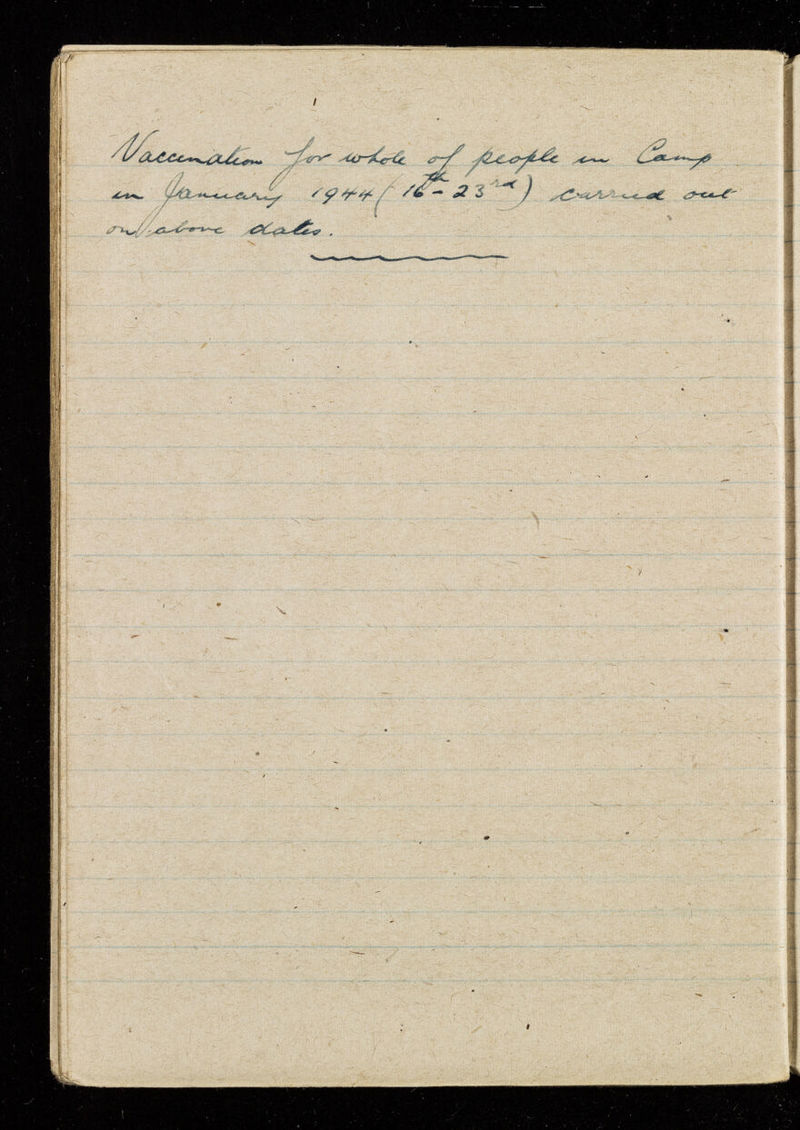 Vaccination for whole of people in Camp
in January 1944 (16th - 23rd) carried out
on above dates.